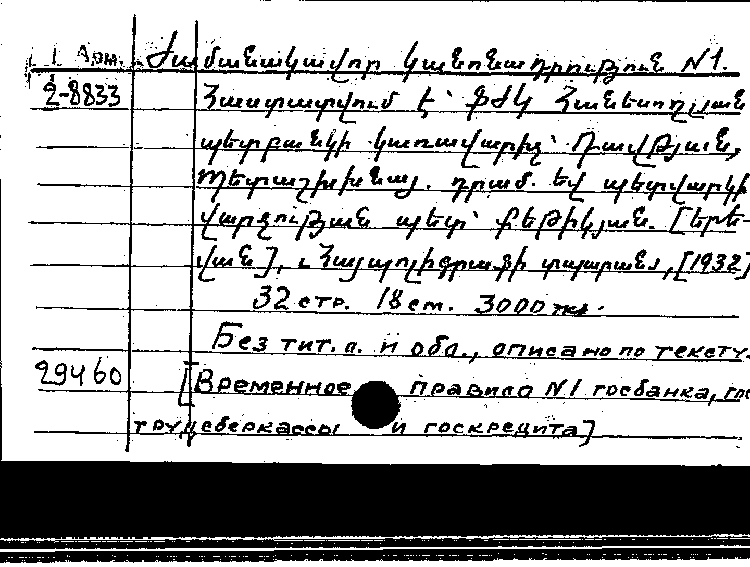 1 Арм. Ժամանակավոր կանոնադրություն N1.
2-8833 Հաստատվում է՝ ՖԺԿ Հանեսօղլյան
պետբանկի կառավարիչ՝ Դավթյան,
Պետաշխխնայ. դրամ. եվ պետվարկի
վարչության պետ՝ Քեթիկյան. [Երե-
վան], Հայպոլիգրաֆի տպարան, [1932]
32 стр. 18 см. 3000 экз.
Без тит. л. и обл., описано по тексту.
29460 [Временное правило N1 госбанка,
трудсберкассы и госкредита]